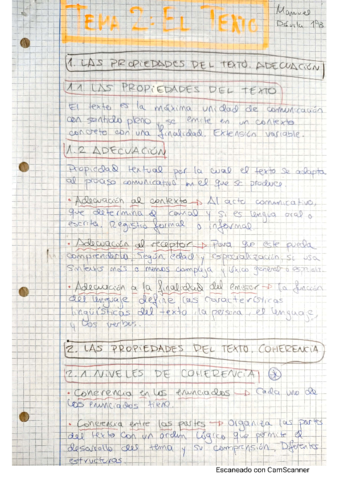 TEMA 2. EL TEXTO
Manuel
Dávila 1ºB
1. LAS PROPIEDADES DEL TEXTO. ADECUACIÓN
1.1 LAS PROPIEDADES DEL TEXTO
El texto es la máxima unidad de comunicación
con sentido pleno y se emite en un contexto
concreto con una finalidad. Extensión variable.
1.2 ADECUACIÓN
Propiedad textual por la cual el texto se adapta
al proceso comunicativo en el que se produce.
· Adecuación al contexto → Al acto comunicativo,
que determina el canal y si es lengua oral o
escrita. Registro formal o informal.
· Adecuación al receptor → Para que este pueda
comprenderlo. Según edad y especialización, se usa
sintaxis más o menos compleja y léxico general o
· Adecuación a la finalidad del emisor → La función
del lenguaje define las características
lingüísticas del texto: la persona, el lenguaje,
y los verbos.
2. LAS PROPIEDADES DEL TEXTO. COHERENCIA
2.1. NIVELES DE COHERENCIA
· Coherencia en los enunciados → Cada uno de
los enunciados
· Coherencia entre las partes → Organiza las partes
del texto con un orden lógico que permite el
desarrollo del tema y su comprensión. Diferentes
estructuras.
Escaneado con CamScanner